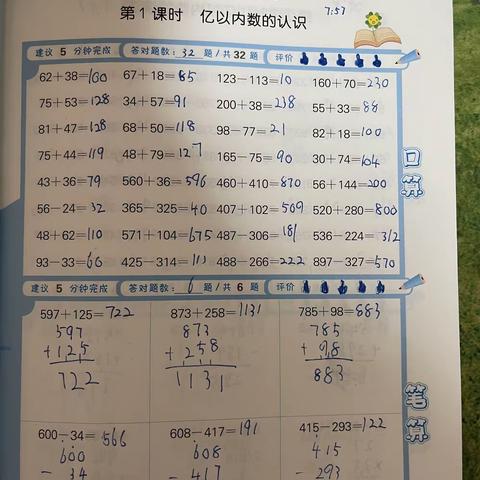 第1课时 亿以内数的认识 7:57
建议 5 分钟完成 答对题数: 32 题/共 32 题 评价
62+38=100 67+18=85 123-113=10 160+70=230
75+53=128 34+57=91 200+38=238 55+33=88
81+47=128 68+50=118 98-77=21 82+18=100
75+44=119 48+79=127 165-75=90 30+74=104
43+36=79 560+36=596 460+410=870 56+144=200
56-24=32 365-325=40 407+102=509 520+280=800
48+62=110 571+104=675 487-306=181 536-224=312
93-33=60 425-314=111 488-266=222 897-327=570
口算
建议 5 分钟完成 答对题数: 6 题/共 6 题 评价
597+125=722 873+258=1131 785+98=883
597 873 785
+125 +258 +98
722 1131 883
笔算
600-34=566 608-417=191 415-293=122
600 608 415
-34 -417 -293